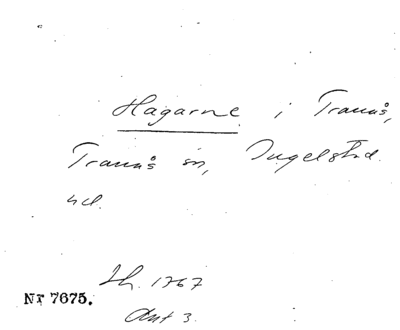 Hagarne i Tranås,
Tranås sn, Ingelstad
hd.
Lh. 1767
Akt 3.
Nr 7675.